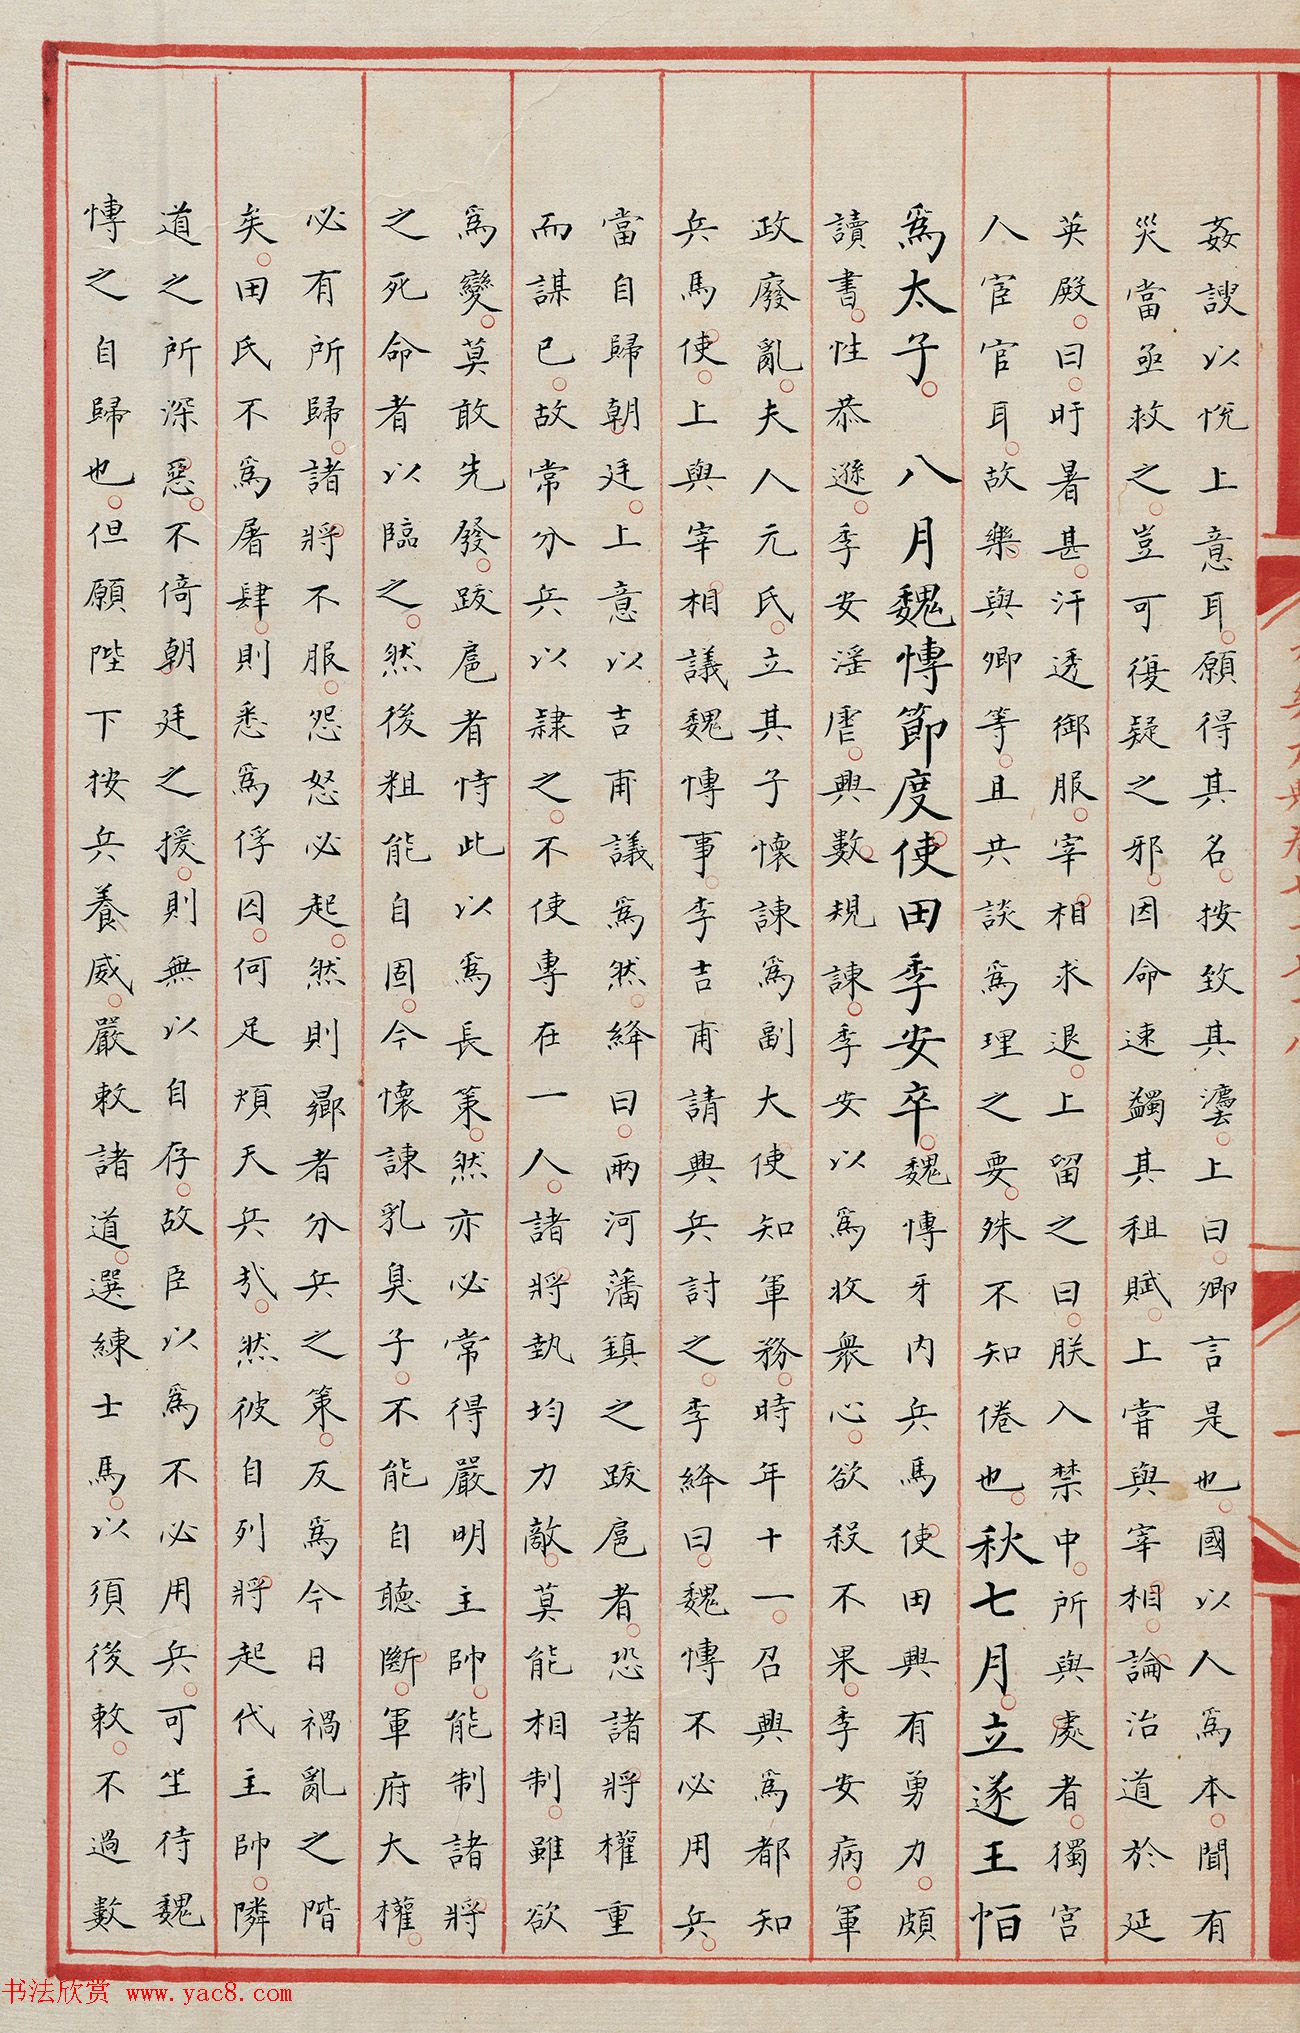 姦諛以悅上意耳。願得其名。按致其灋。上曰。卿言是也。國以人爲本。聞有
災當亟救之。豈可復疑之邪。因命速蠲其租賦。上嘗與宰相。論治道於延
英殿。日旰暑甚。汗透御服。宰相求退。上留之曰。朕入禁中。所與處者。獨宮
人宦官耳。故樂與卿等。且共談爲理之要。殊不知倦也。秋七月。立遂王恒
爲太子。八月魏愽節度使田季安卒。魏愽牙內兵馬使田興有勇力。頗
讀書。性恭遜。季安淫虐。興數規諫。季安以爲收衆心。欲殺不果。季安病。軍
政廢亂。夫人元氏。立其子懷諫爲副大使知軍務。時年十一。召興爲都知
兵馬使。上與宰相議魏愽事。李吉甫請興兵討之。李絳曰。魏愽不必用兵。
當自歸朝廷。上意以吉甫議爲然。絳曰。兩河藩鎮之跋扈者。恐諸將權重
而謀已。故常分兵以隷之。不使專在一人。諸將執均力敵。莫能相制。雖欲
爲變。莫敢先發。跋扈者恃此以爲長策。然亦必常得嚴明主帥。能制諸將
之死命者以臨之。然後粗能自固。今懷諫乳臭子。不能自聽斷。軍府大權。
必有所歸。諸將不服。怨怒必起。然則曏者分兵之策。反爲今日禍亂之階
矣。田氏不爲屠肆。則悉爲俘囚。何足煩天兵哉。然彼自列將起代主帥。隣
道之所深惡。不倚朝廷之援。則無以自存。故臣以爲不必用兵。可坐待魏
愽之自歸也。但願陛下按兵養威。嚴敕諸道。選練士馬。以須後敕。不過數
书法欣赏 www.yac8.com